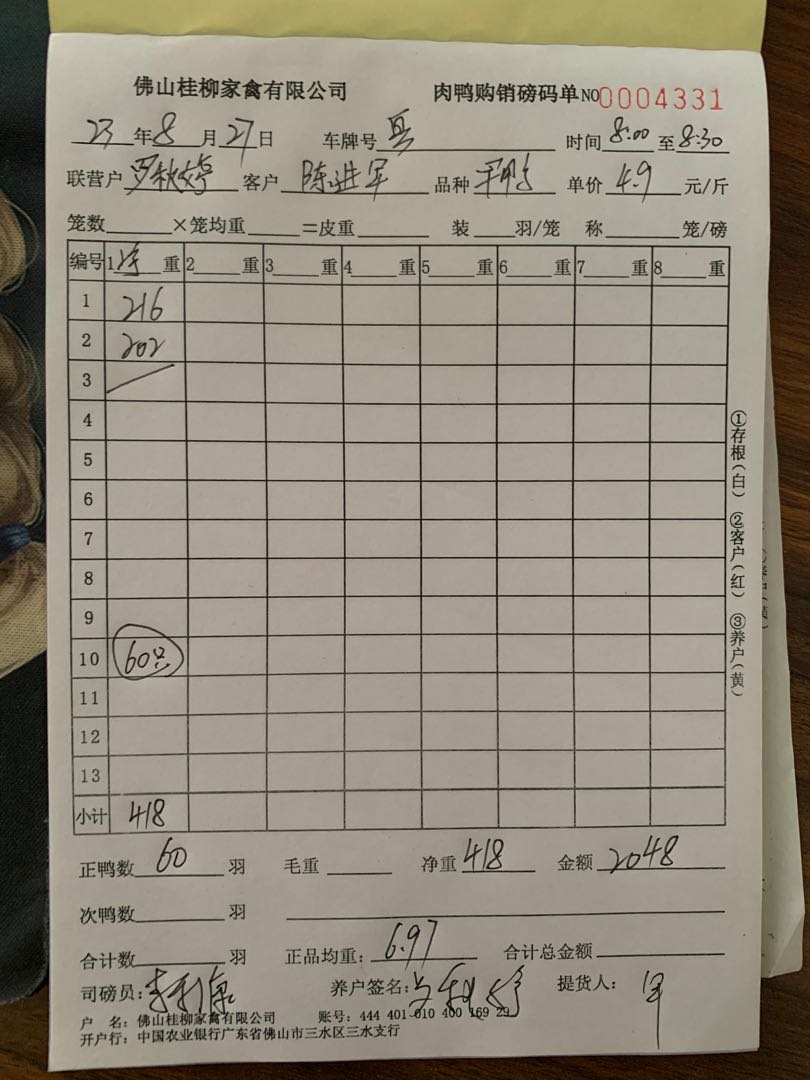 佛山桂柳家禽有限公司 肉鸭购销磅码单 NO0004331
23年8月27日 车牌号 时间8:00至8:30
联营户罗秋婷 客户陈进军 品种 单价4.9元/斤
笼数____×笼均重____=皮重____ 装____羽/笼 称____笼/磅
编号 1净重 2____重 3____重 4____重 5____重 6____重 7____重 8____重
1 216
2 202
3
4
5
6
7
8
9
10 60只
11
12
13
小计 418
①存根(白) ②客户(红) ③养户(黄)
正鸭数60羽 毛重____ 净重418 金额2048
次鸭数____羽
合计数____羽 正品均重:6.97 合计总金额____
司磅员: 养户签名: 提货人:军
户 名:佛山桂柳家禽有限公司 账号:444 401-010 400 169 29
开户行:中国农业银行广东省佛山市三水区三水支行